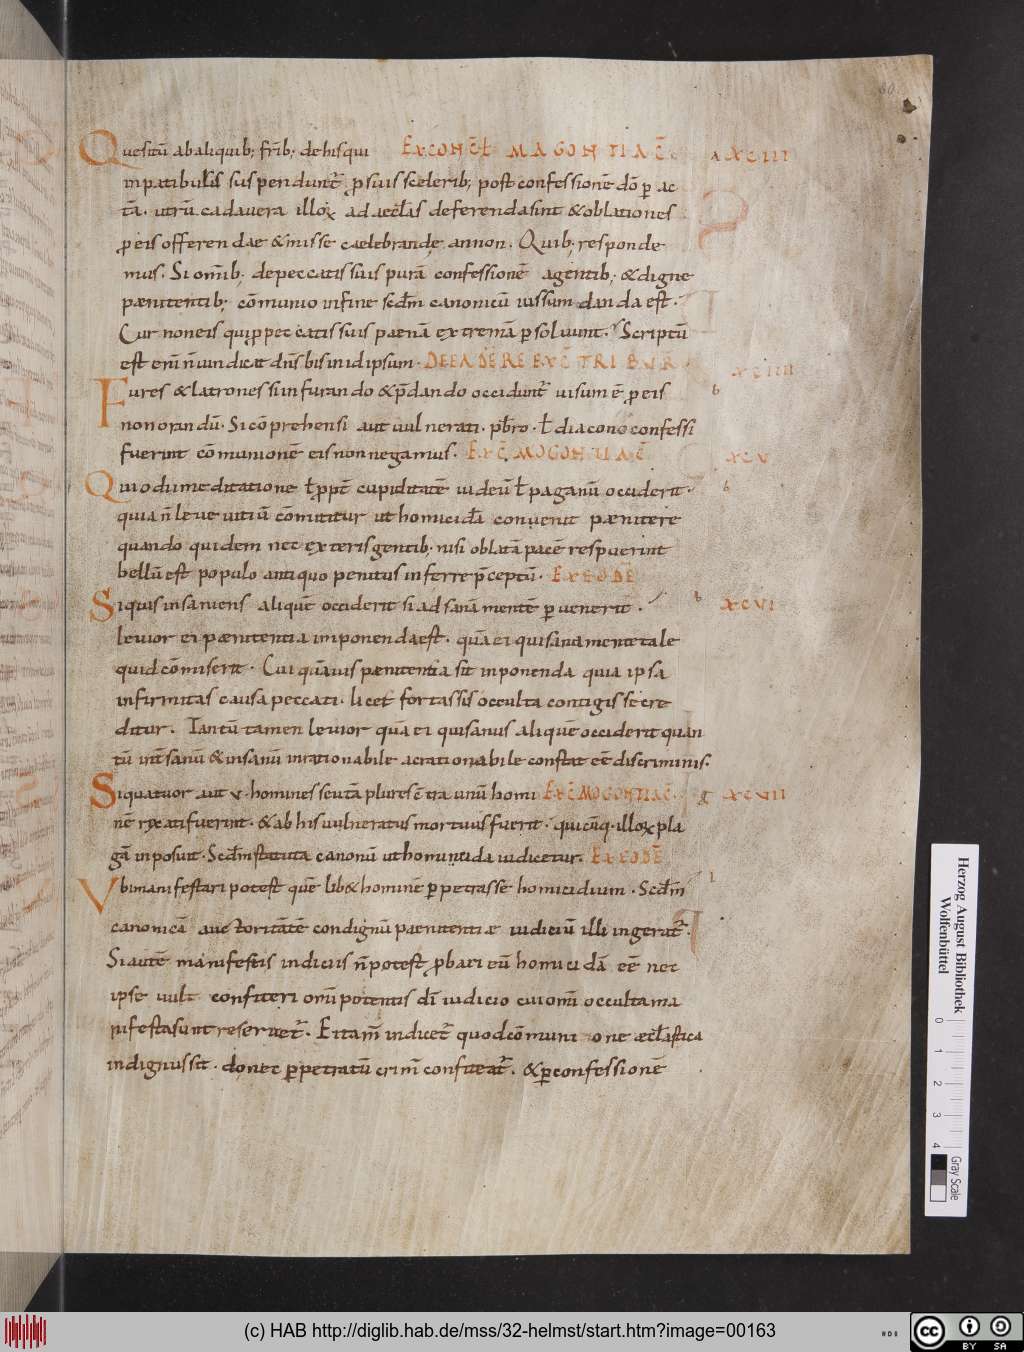 Quesitū ab aliquib; frīb; de his qui EX CONCŁ MAGONTIAC̄. XCIII
in patibulis suspendunt̄ ꝓ suis sceleribꝫ post confessionē dō ꝑac
tā. utrū cadavera illoꝝ ad aecłas deferenda sint & oblationes
ꝓ eis offerendae & missę caelebrandę annon. Quibꝫ responde
mus. Si om̄ibꝫ de peccatis suis purā confessionē agentibꝫ & digne
paenitentibꝫ cōmunio in fine scđm canonicū iussum danda est.
Cur non eis qui ꝓ peccatis suis paenā extremā ꝑsoluunt. Scriptū
est enī n̄ iudicat dn̄s bis in idipsum. DE EADĒ RE EX C̄ TRIBUR. XCIIII
Fures & latrones si in furando & p̄dando occidunt̄ uisum ē ꝓ eis b
non orandū. Si cōprehensi aut uulnerati. pb̄ro. ł diacono confessi
fuerint cōmunionē eis non negamus. EX C̄ MOGONTIAC̄ XCV
Qui odii meditatione ł ꝓpt̄ cupiditatē iudeū ł paganū occiderit. b
quia n̄ leue uitiū cōmittitur ut homicidā conuenit paenitere
quando quidem nec exteris gentibꝫ nisi oblatā pacē respuerint
bellū est populo antiquo penitus inferre p̄ceptū. EX EODĒ
Si quis insaniens aliquē occiderit si ad sanā mentē ꝑuenerit. b XCVI
leuior ei paenitentia imponenda est. quā ei qui sana mente tale
quid cōmiserit. Cui quāuis paenitentia sit inponenda quia ipsa
infirmitas causa peccati. licet fortassis occulta contigisse cre
ditur. Tantū tamen leuior quā ei qui sanus aliquē occiderit quan
tū int̄ sanū & insanū inrationabile ac rationabile constat eē discriminis.
Si quatuor aut v. homines seu &iā plures ctra unū homi EX C̄ MOGONTIAC. g XCVII
nē rixati fuerint. & ab his uulneratus mortuus fuerit. quicūq. illoꝝ pla
gā inposuit. Scđm statuta canonū ut homicida iudicetur. EX EODĒ
Ubi manifestari potest quē lib& hominē ꝑpetrasse homicidium. Scđm l
canonicā auctoritatē condignū paenitentiae iudiciū illi ingerat̄.
Si autē manifestis indiciis n̄ potest ꝓbari eū homicidā eē nec
ipse uult confiteri om̄ipotentis dī iudicio cui om̄ia occulta ma
nifesta sunt reseruet̄. Et tam̄ indicet̄ quod cōmunione aecłastica
indignus sit. donec ꝑpetratū crim̄ confiteat̄. & ꝑ confessionē
Herzog August Bibliothek
Wolfenbüttel
0 1 2 3 4
Gray Scale
(c) HAB http://diglib.hab.de/mss/32-helmst/start.htm?image=00163
CC BY SA